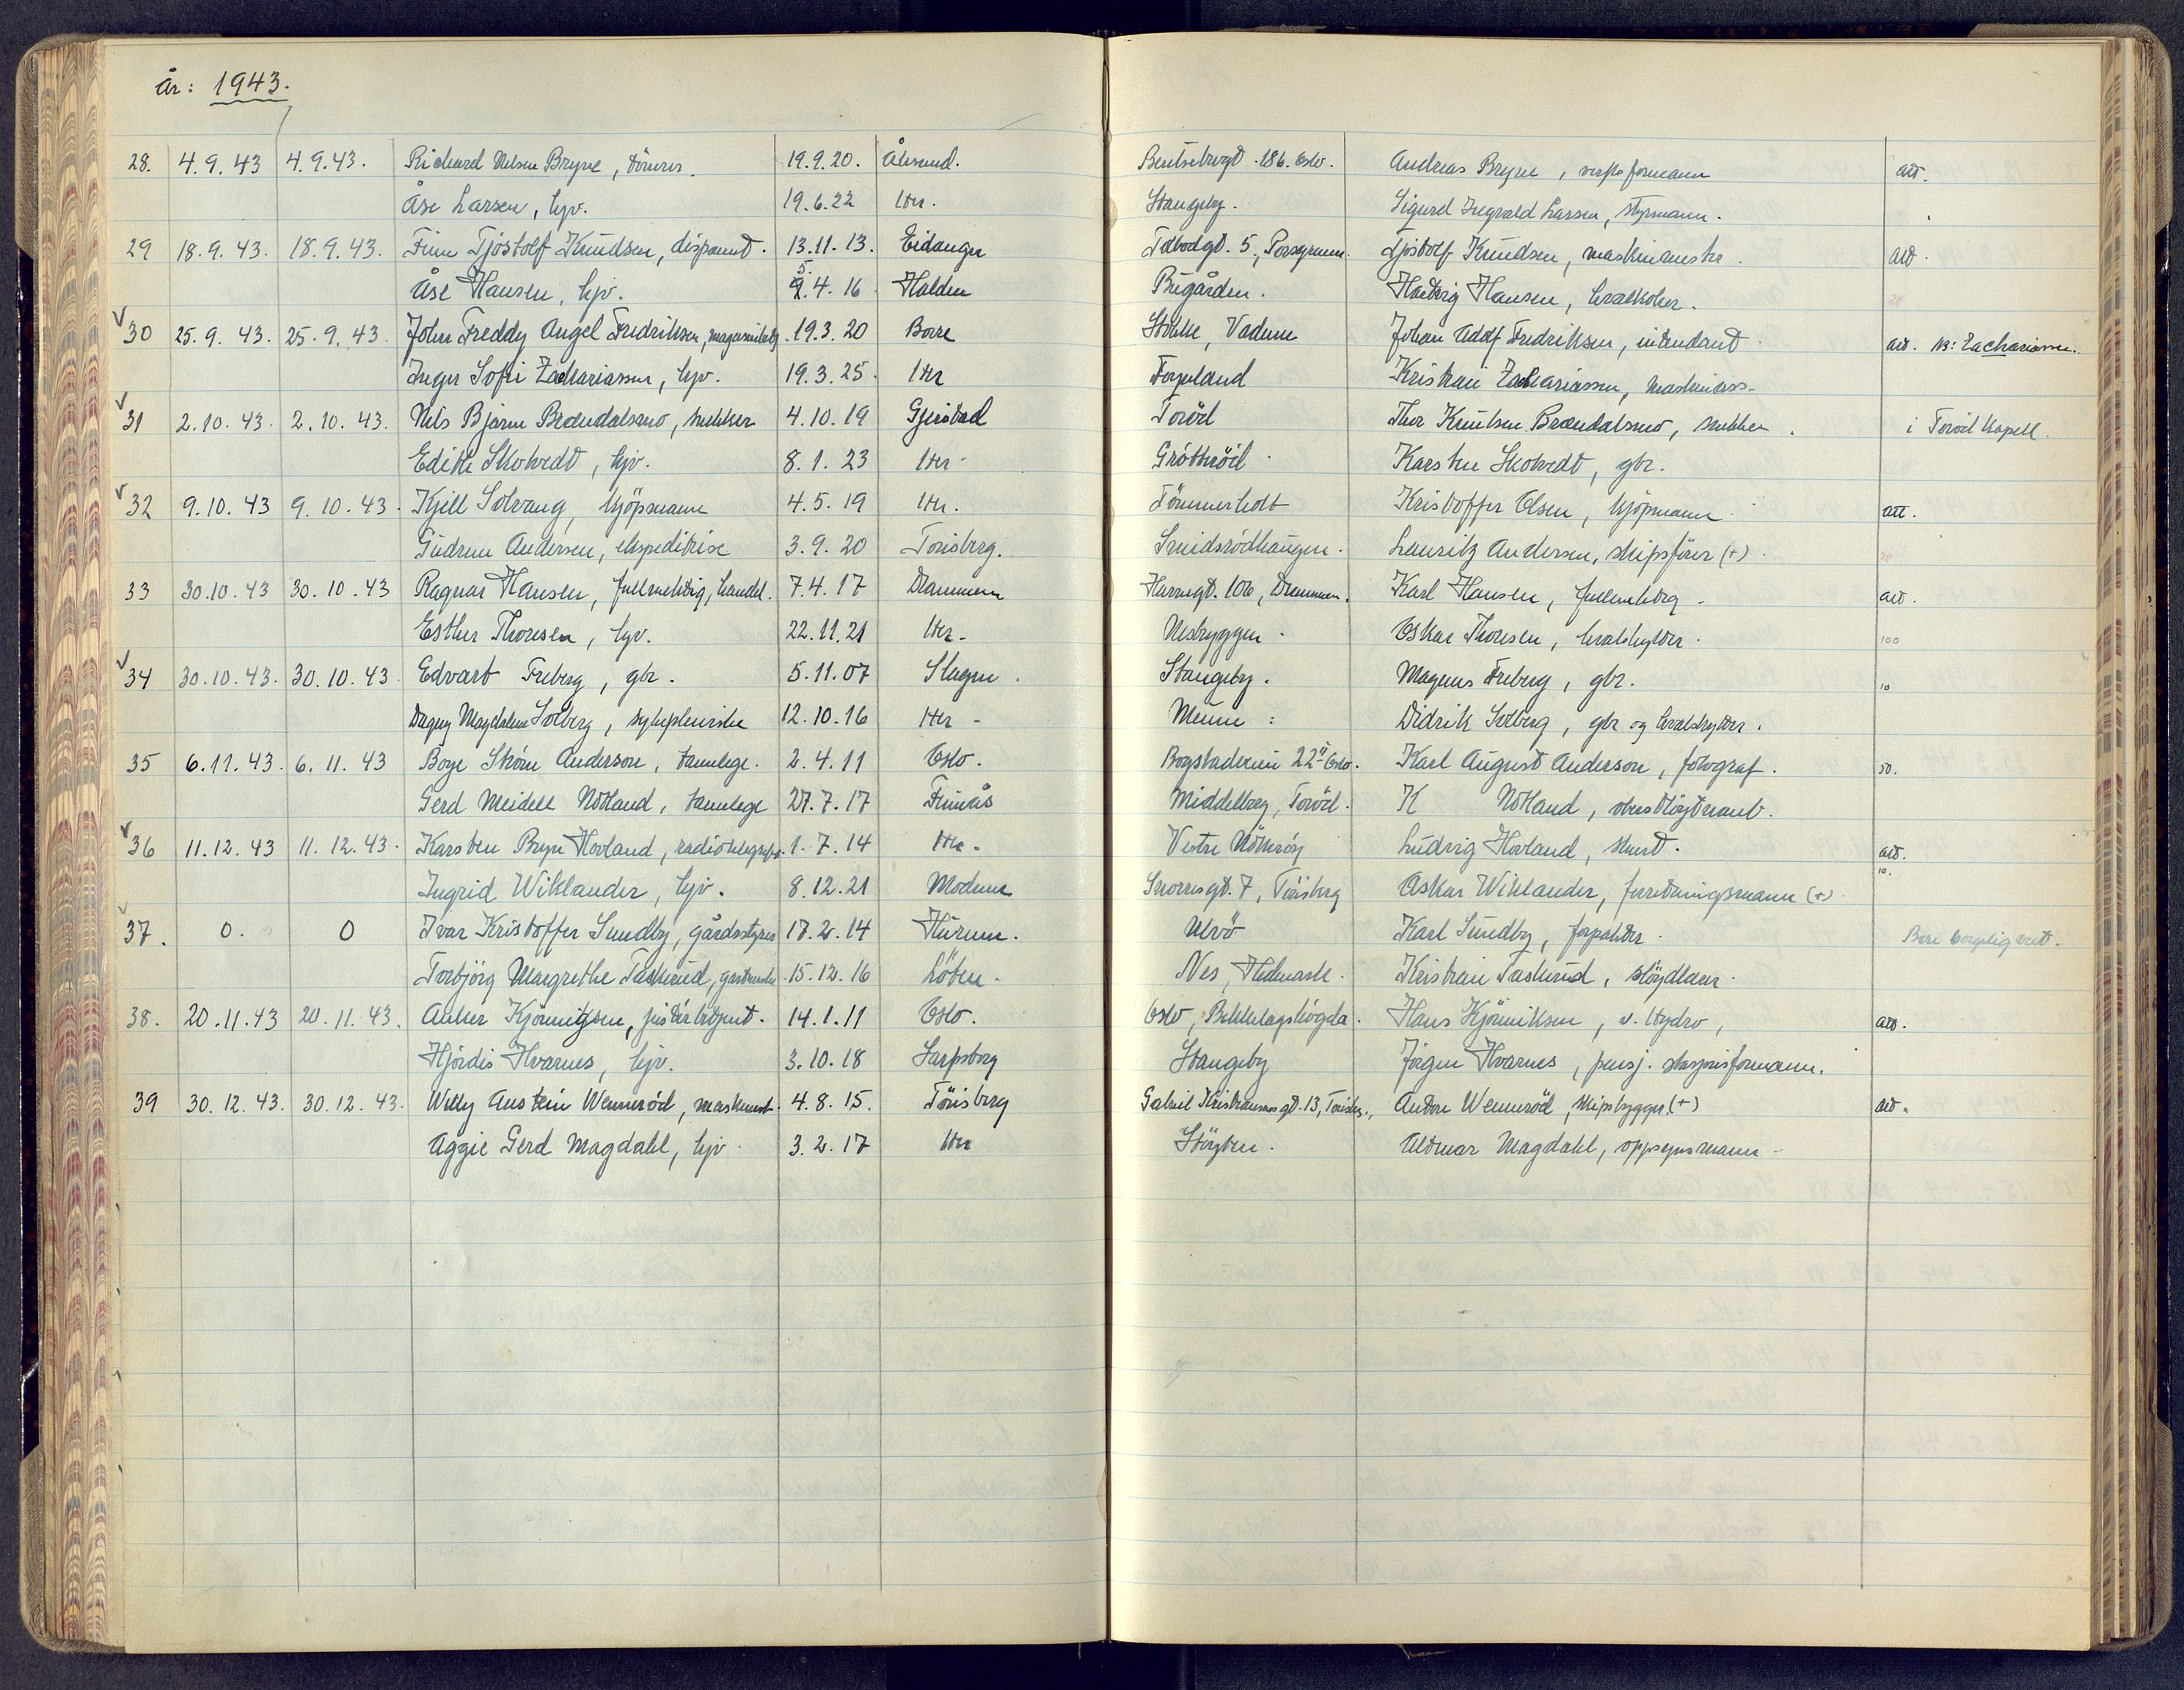 År: 1943.
28. 4.9.43 4.9.43. Richard Nelsen Bryne, 19.9.20. Ålesund. 186. Oslo. Andreas Bryne, att.
Åse Larsen, hjv. 19.6.22 Htr. Stangeby. Sigurd Ingvald Larsen, styrmann.
29 18.9.43. 18.9.43. Finn Tjöstolf Knudsen, dispaunt. 13.11.13. Eidanger Tolbodgt. 5., Porsgrunn. Tjöstolf Knudsen, att.
Åse Hansen, hjv. 5. 9.4.16 Halden Bugården. Hartvig Hansen, hvalkoker. 20
30 25.9.43. 25.9.43. John Freddy Angel Fredriksen, 19.3.20 Borre Stokke, Vadum Johan Adolf Fredriksen, intendant. att. NB: Zachariassen.
Inger Sofi Zachariassen, hjv. 19.3.25. Htr Fogneland Kristian Zachariassen, maskinass.
31 2.10.43. 2.10.43. Nils Bjarne Brændalsmo, snekker 4.10.19 Gjerstad Torød Thor Knutsen Brændalsmo, snekker. i Torød kapell.
Edith Skotvedt, hjv. 8.1.23 Htr. Gröttröd. Karsten Skotvedt, gbr.
32 9.10.43 9.10.43. Kjell Solvang, kjöpmann 4.5.19 Htr. Tömmerholt Kristoffer Olsen, kjöpmann att.
Gudrun Andersen, ekspeditrise 3.9.20 Tönsberg. Smidsrödhaugen. Lauritz Andersen, skipsförer (+). 20
33 30.10.43 30.10.43 Ragnar Hansen, fullmektig, handel. 7.4.17 Drammen Havnegt. 106, Drammen. Karl Hansen, fullmektig. att.
Esther Thoresen, hjv. 22.11.21 Htr. Nesbryggen. Oskar Thoresen, hvalskytter. 100
34 30.10.43. 30.10.43. Edvart Freberg, gbr. 5.11.07 Slagen. Stangeby. Magnus Freberg, gbr. 10
Dagny Magdalene Solberg, sykepleierske 12.10.16 Htr. Meum: Didrik Solberg, gbr og hvalskytter.
35 6.11.43. 6.11.43 Börge Ström Anderson, tannlege. 2.4.11 Oslo. Bogstadveien 22 II Oslo. Karl August Anderson, fotograf. 50.
Gerd Meidell Nötland, tannlege 27.7.17 Finnås Middelborg, Torød. K Nötland, oberstlöytnant.
36 11.12.43 11.12.43. Karsten Bryn Hovland, radiotelegrafist. 1.7.14 Htr. Vestre Nötteröy Ludvig Hovland, att.
Ingrid Wiklander, hjv. 8.12.21 Modum Snorresgt. 7, Tönsberg Oskar Wiklander, forretningsmann (+). 10.
37. 0. 0 Ivar Kristoffer Sundby, gårdsstyrer 17.2.14 Hurum. Ulvö Karl Sundby, forpakter. Bare borgelig viet.
Torbjörg Margrethe Taskerud, 15.12.16 Löten. Nes, Hedmark. Kristian Taskerud, slöydlærer.
38. 20.11.43 20.11.43. Anker Kjönniksen, 14.1.11 Oslo. Oslo, Bekkelagshögda. Hans Kjönniksen, v. Hydro, att.
Hjördis Hvarnes, hjv. 3.10.18 Sarpsborg Stangeby Jörgen Hvarnes, pensj.
39 30.12.43. 30.12.43. Willy Austein Wennerød, maskinist. 4.8.15. Tönsberg Gabriel Kristiansens gt. 13, Tönsbg., Anton Wenneröd, skipsbygger (+) att.
Aggie Gerd Magdahl, hjv. 3.2.17 Htr Höyten. Aldmar Magdahl, oppsynsmann.